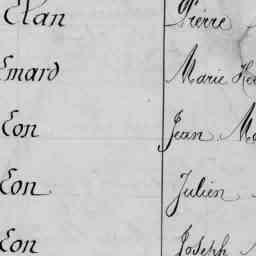 Elan Pierre
Emard Marie
Eon Jean
Eon Julien
Eon Joseph